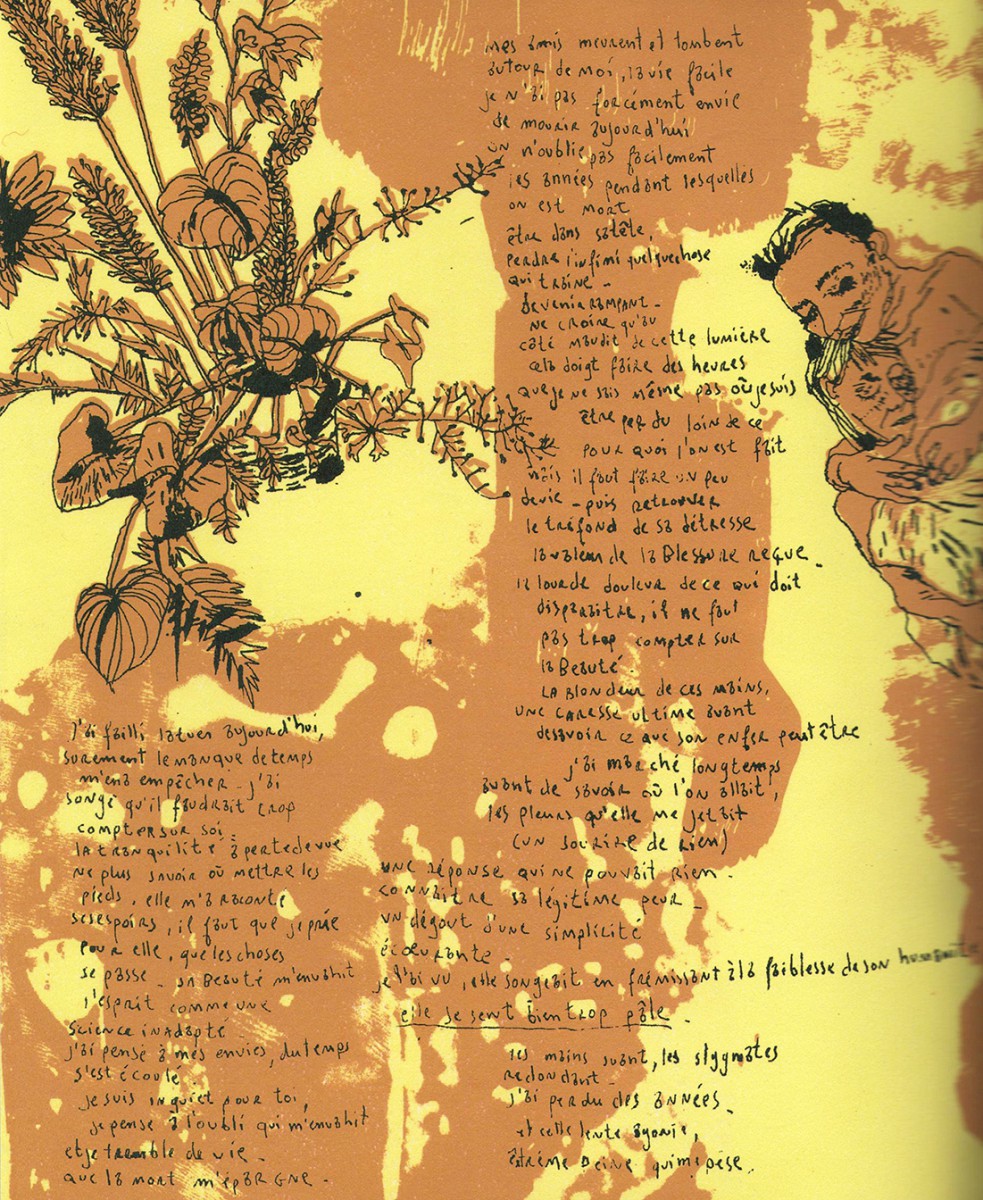 mes amis meurent et tombent
autour de moi, la vie facile
je n'ai pas forcément envie
de mourir aujourd'hui
on n'oublie pas facilement
les années pendant lesquelles
on est mort
être dans sa tête,
perdre l'infimi quelquechose
qui traine -
devenir rampant -
ne croire qu'au
côté maudit de cette lumière
cela doigt faire des heures
que je ne sais même pas où je suis
être perdu loin de ce
pour quoi l'on est fait
mais il faut faire un peu
de vie - puis retrouver
le tréfond de sa détresse
de la Blessure reçue -
la lourde douleur de ce qui doit
disparaitre, il ne faut
pas trop compter sur
la Beauté.
La Blondeur de ces mains,
une caresse ultime avant
de savoir ce que son enfer peut être
j'ai marché longtemps
avant de savoir où l'on allait,
les pleurs qu'elle me jetait
(un sourire de rien)
une réponse qui ne pouvait rien -
connaitre sa légitime peur -
un dégout d'une simplicité
écoeurante -
je l'ai vu, elle songeait en frémissant à la faiblesse de son
elle se sent bien trop pâle.
les mains suant, les stygmates
redondant -
j'ai perdu des années -
et cette lente agonie,
qui me pèse.
J'ai failli la tuer aujourd'hui,
surement le manque de temps
m'en a empêcher - j'ai
songé qu'il faudrait trop
compter sur soi :
la tranquilité à perte de vue
ne plus savoir où mettre les
pieds, elle m'a raconté
ses espoirs, il faut que je prie
pour elle, que les choses
se passe - sa Beauté m'envahit
l'esprit comme une
science inadapté
j'ai pensé à mes envies, du temps
s'est écoulé.
je suis inquiet pour toi,
je pense à l'oubli qui m'envahit
et je tremble de vie -
que la mort m'épargne -